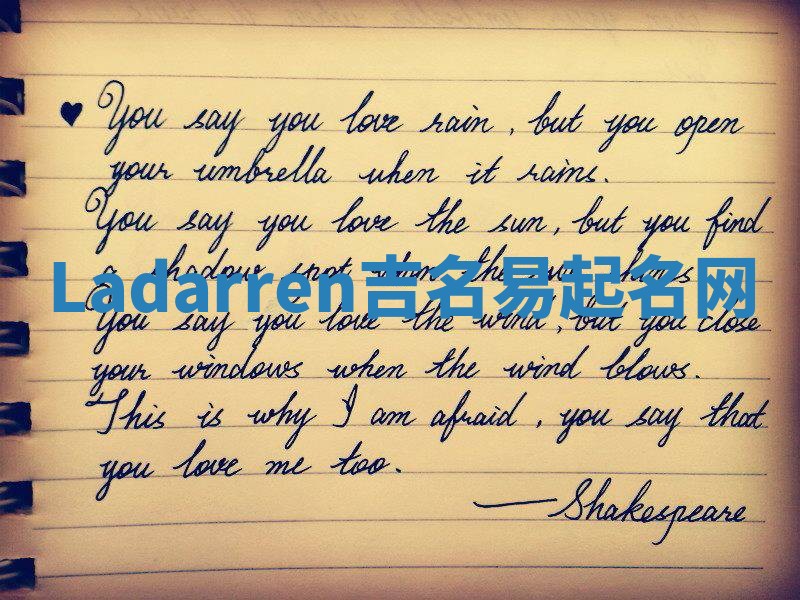 ♥ You say you love rain, but you open
your umbrella when it rains.
You say you love the sun, but you find
a shadow spot when the sun shines
Ladarren吉名易起名网
You say you love the wind, but you close
your windows when the wind blows.
This is why I am afraid, you say that
you love me too.
—Shakespeare